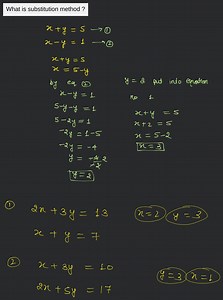 What is substitution method ?
x + y = 5 → ①
x - y = 1 → ②
x + y = 5
x = 5 - y
by eq ②
x - y = 1
5 - y - y = 1
5 - 2y = 1
-2y = 1 - 5
-2y = -4
y = 2
y = 2 put into equation
no 1
x + y = 5
x + 2 = 5
x = 5 - 2
x = 3
①
2x + 3y = 13
x + y = 7
x = 2 y = 3
②
x + 3y = 10
2x + 5y = 17
y = 3 x = 1